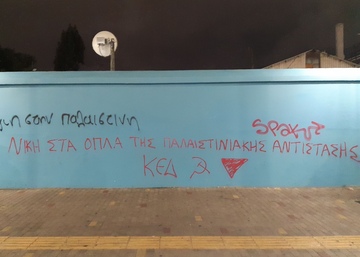 στην Παλαιστινη
Spak
ΝΙΚΗ ΣΤΑ ΟΠΛΑ ΤΗΣ ΠΑΛΑΙΣΤΙΝΙΑΚΗΣ ΑΝΤΙΣΤΑΣΗΣ
ΚΕΔ ☭